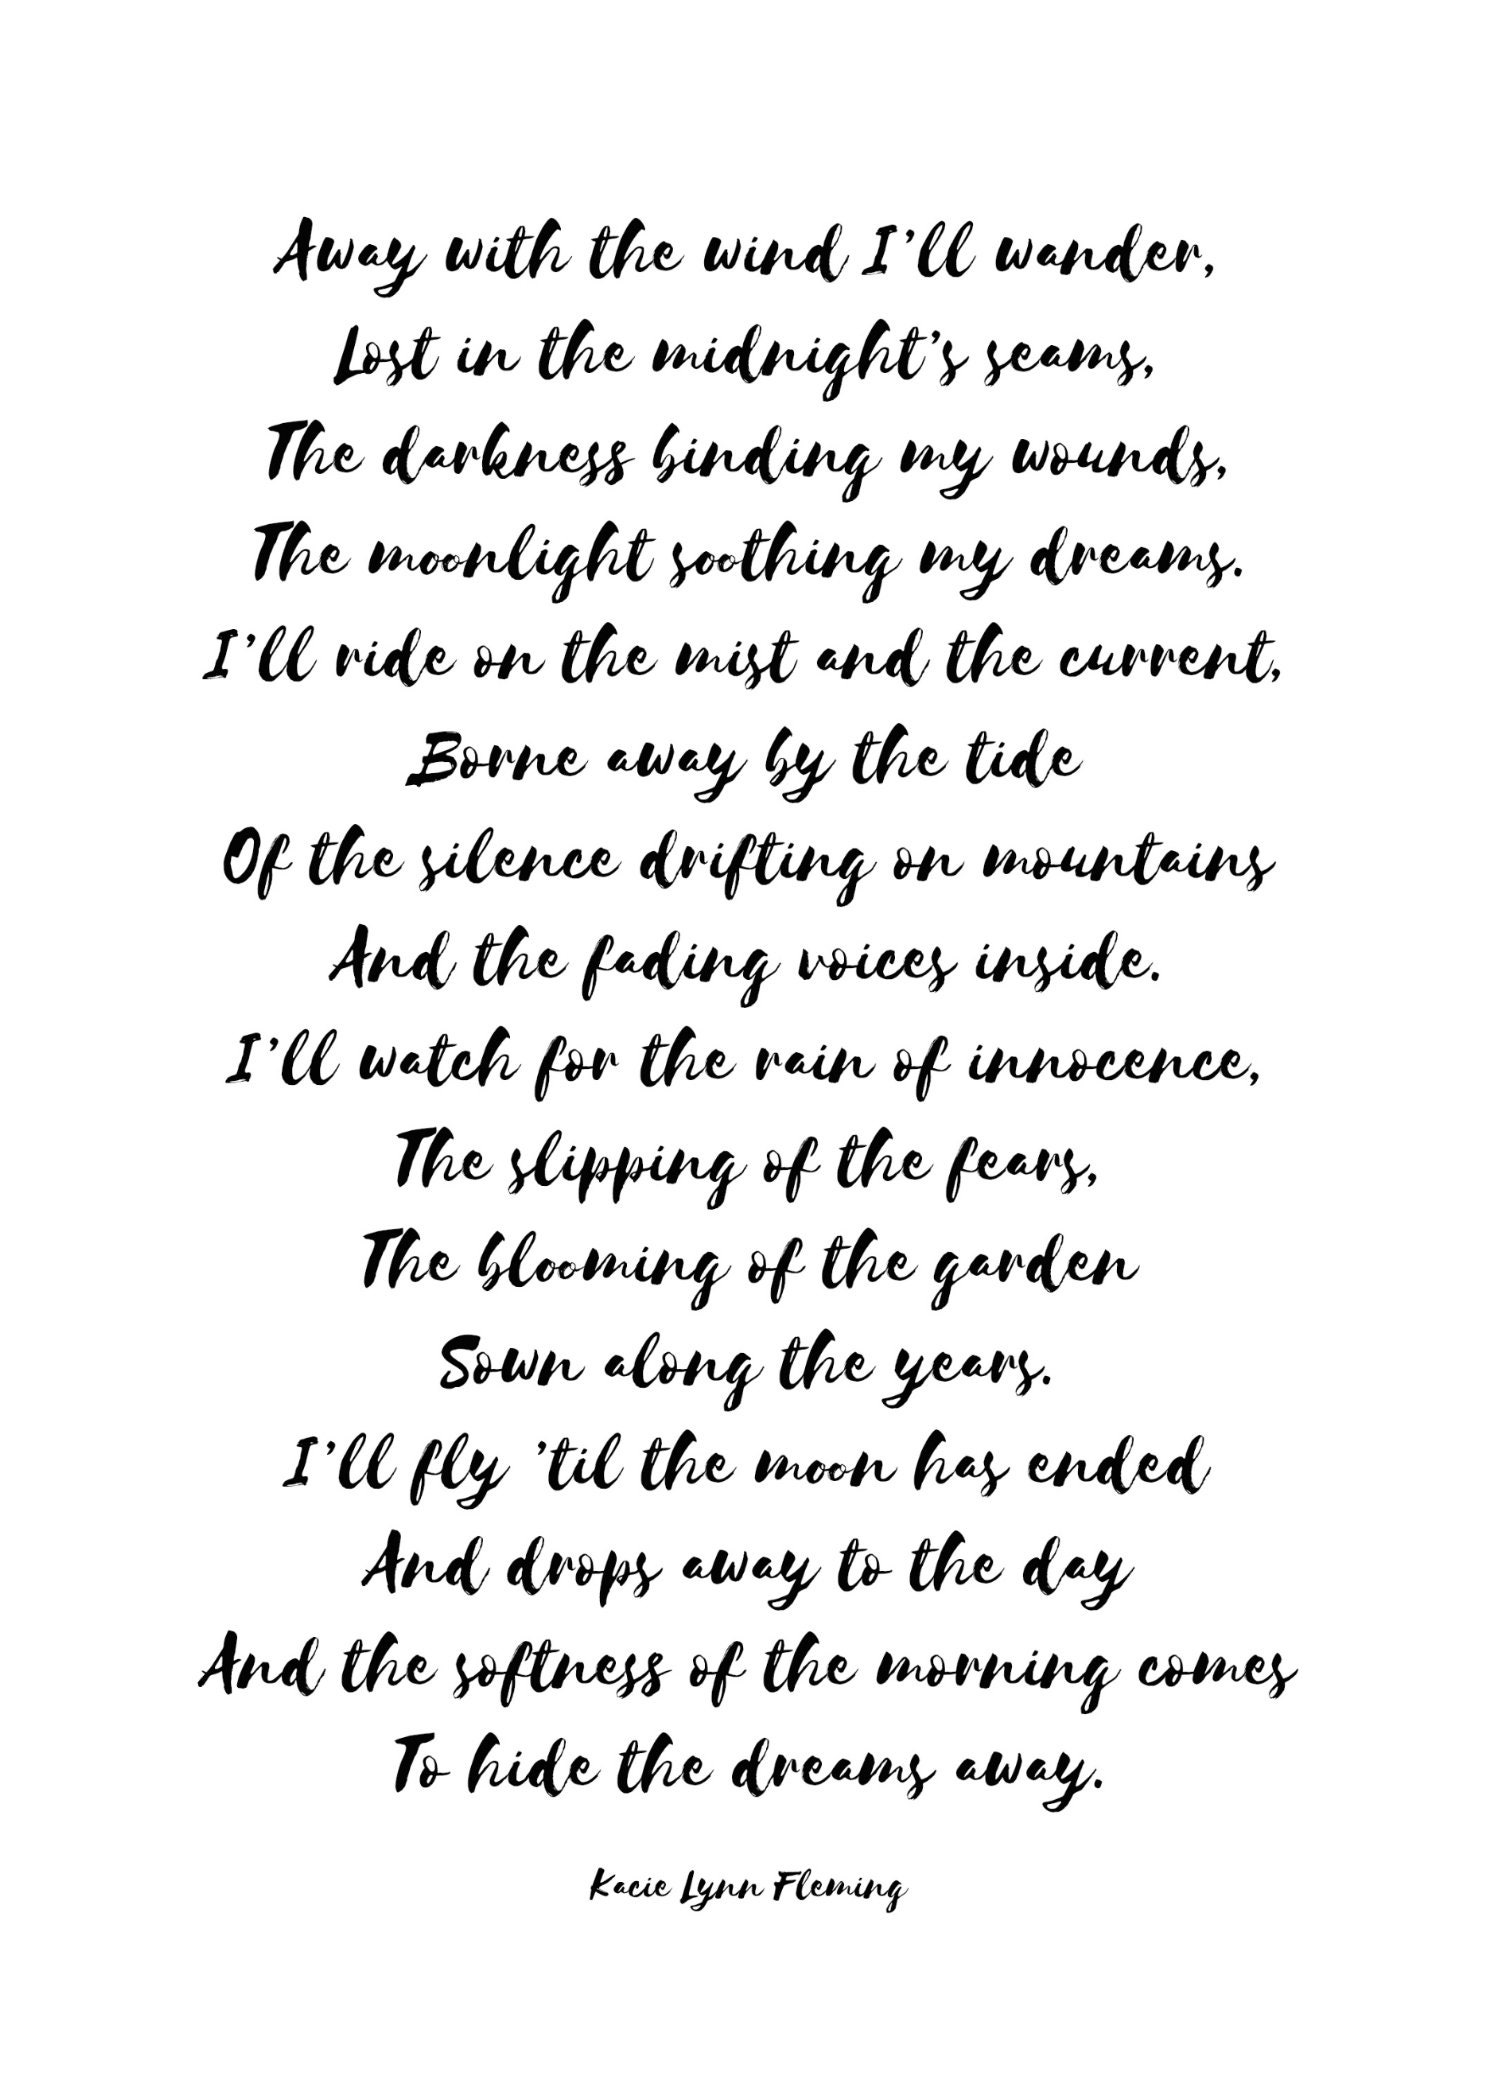 Away with the wind I'll wander,
Lost in the midnight's seams,
The darkness binding my wounds,
The moonlight soothing my dreams.
I'll ride on the mist and the current,
Borne away by the tide
Of the silence drifting on mountains
And the fading voices inside.
I'll watch for the rain of innocence,
The slipping of the fears,
The blooming of the garden
Sown along the years.
I'll fly 'til the moon has ended
And drops away to the day
And the softness of the morning comes
To hide the dreams away.
Kacie Lynn Fleming